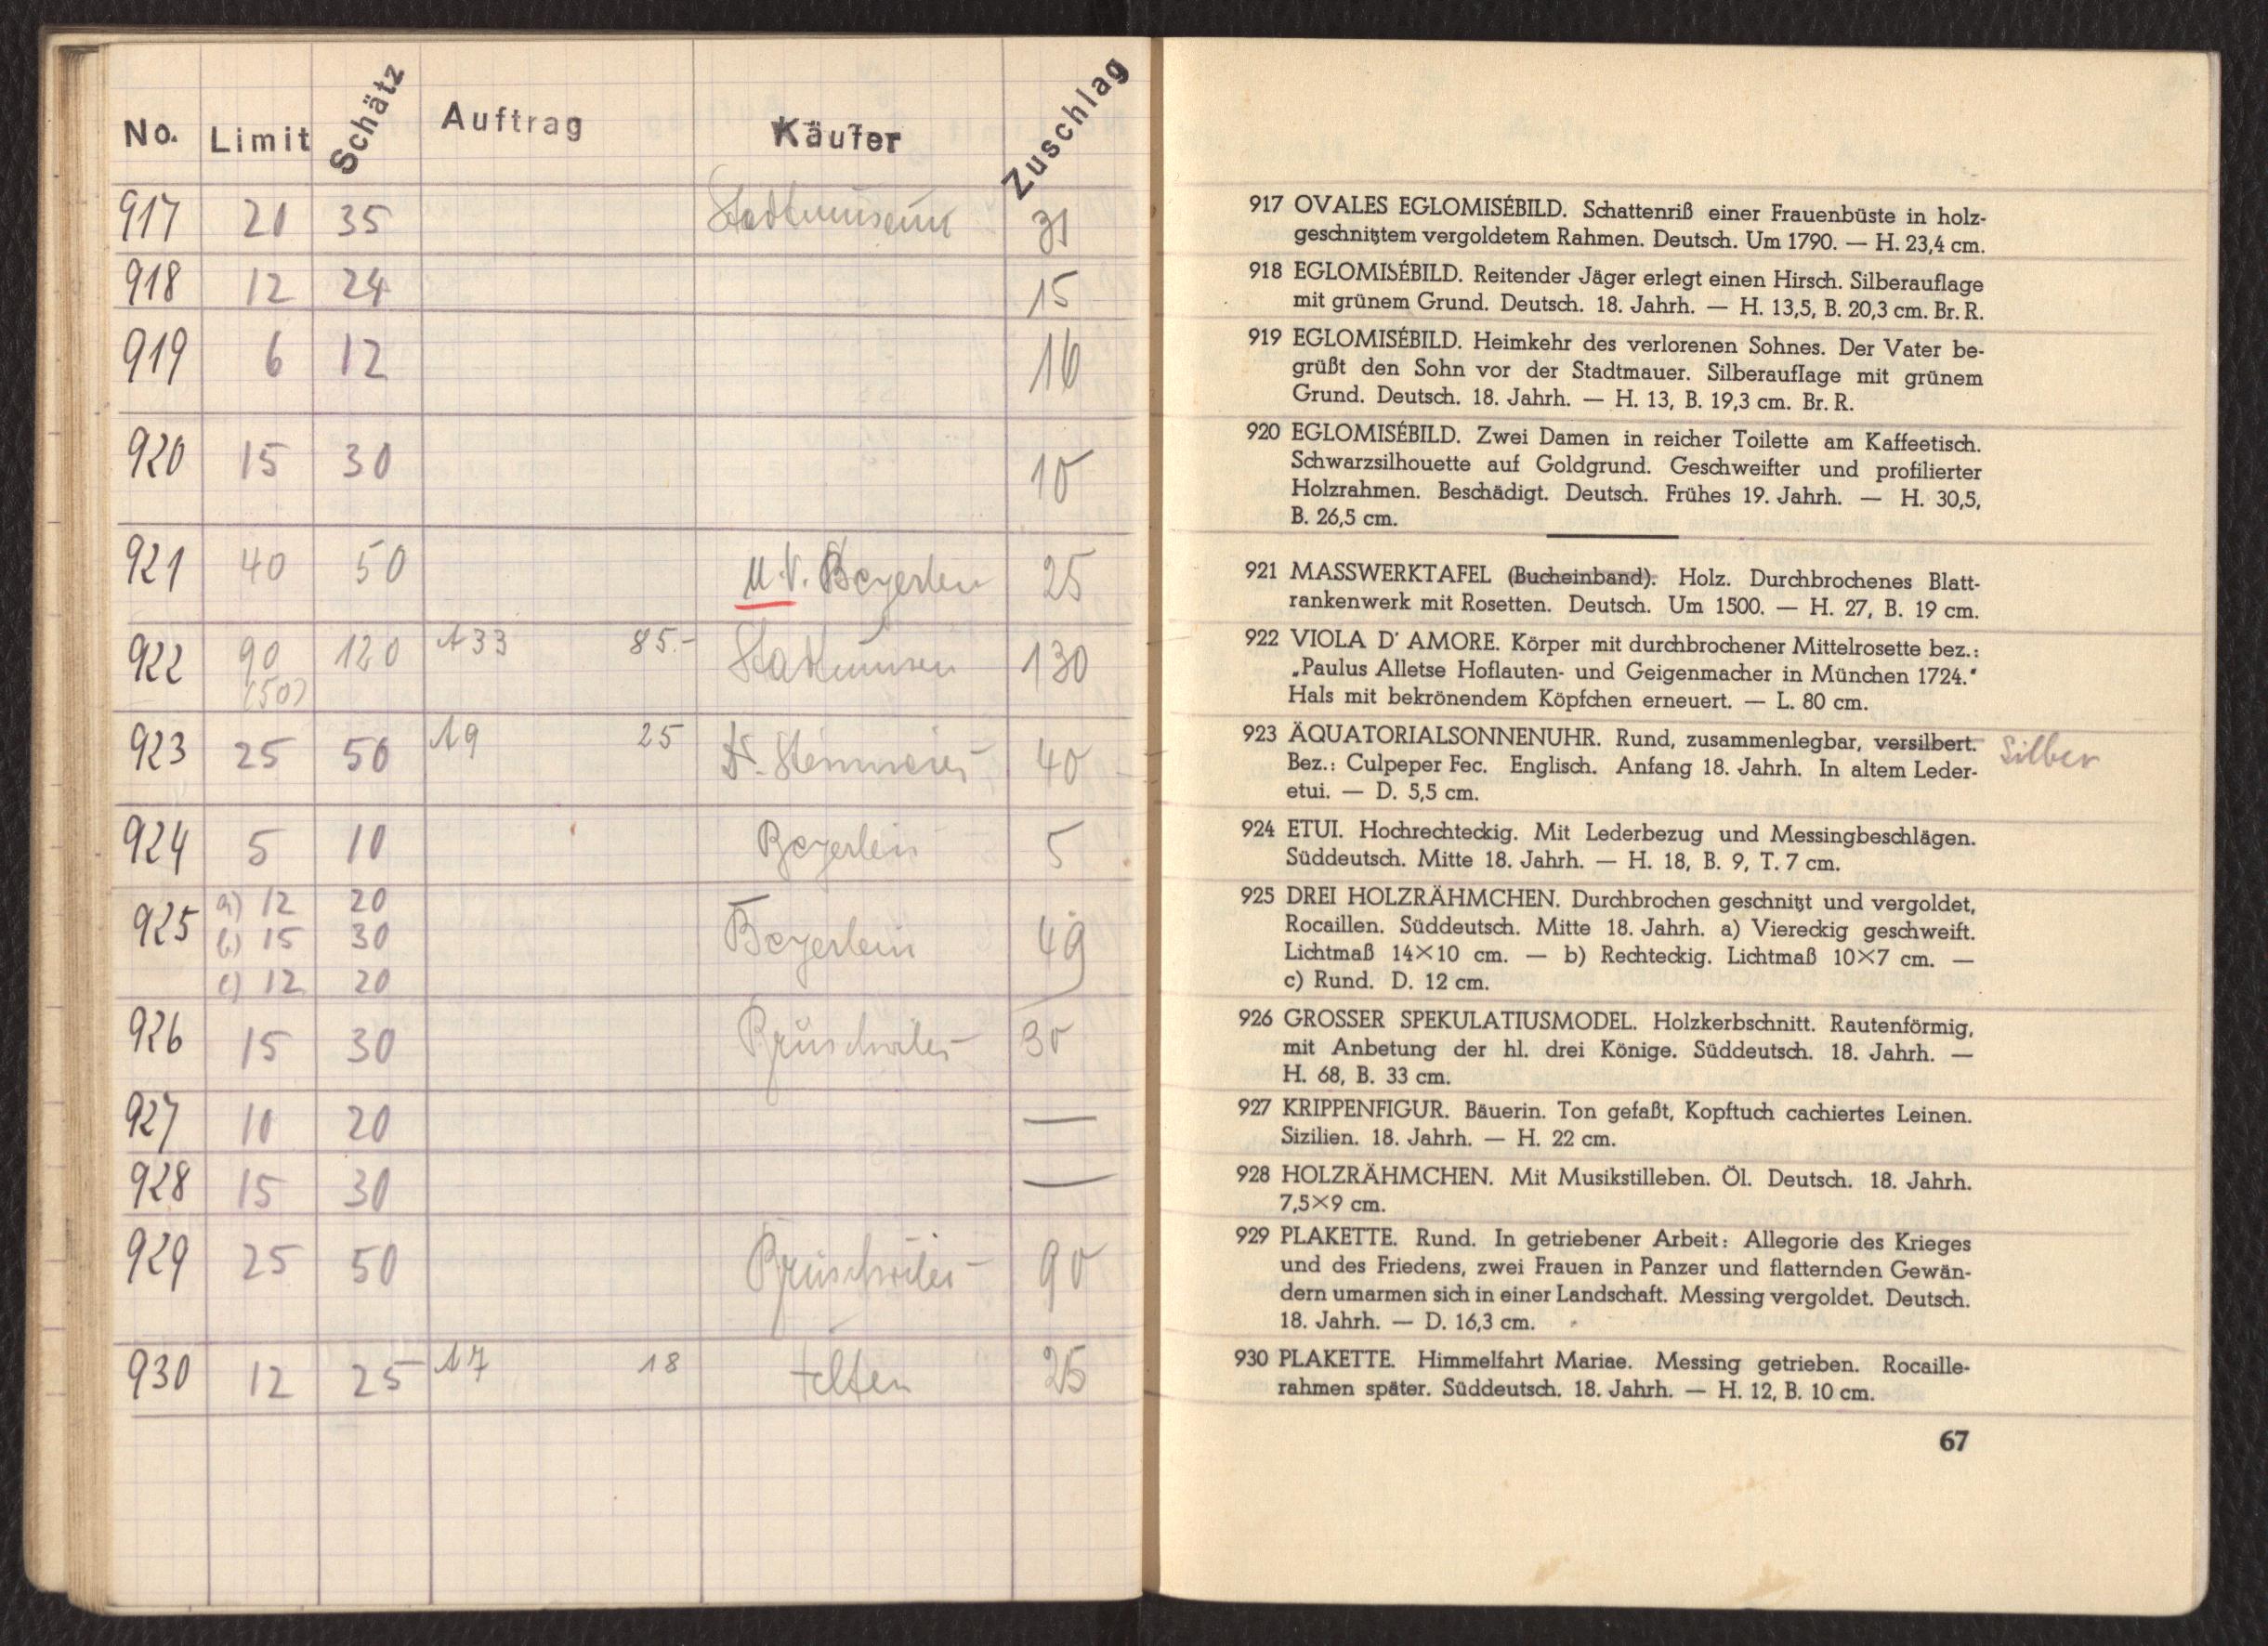 No. Limit Schätz Auftrag Käufer Zuschlag
917 21 35 Stadtmuseum 31
918 12 24 15
919 6 12
920 15 30 10
921 40 50 U.V. Beyerlen 25
922 90 120 A33 85.- Stadtmuseu 130
(50)
923 25 50 A9 25 40
924 5 10 Beyerlein 5
925 a) 12 20 Beyerlein 49
b) 15 30
c) 12 20
926 15 30 30
927 10 20 —
928 15 30 —
929 25 50 90
930 12 25 A7 18 25
917 OVALES EGLOMISÉBILD. Schattenriß einer Frauenbüste in holz-
geschnitztem vergoldetem Rahmen. Deutsch. Um 1790. — H. 23,4 cm.
918 EGLOMISÉBILD. Reitender Jäger erlegt einen Hirsch. Silberauflage
mit grünem Grund. Deutsch. 18. Jahrh. — H. 13,5, B. 20,3 cm. Br. R.
919 EGLOMISÉBILD. Heimkehr des verlorenen Sohnes. Der Vater be-
grüßt den Sohn vor der Stadtmauer. Silberauflage mit grünem
Grund. Deutsch. 18. Jahrh. — H. 13, B. 19,3 cm. Br. R.
920 EGLOMISÉBILD. Zwei Damen in reicher Toilette am Kaffeetisch.
Schwarzsilhouette auf Goldgrund. Geschweifter und profilierter
Holzrahmen. Beschädigt. Deutsch. Frühes 19. Jahrh. — H. 30,5,
B. 26,5 cm.
921 MASSWERKTAFEL (Bucheinband). Holz. Durchbrochenes Blatt-
rankenwerk mit Rosetten. Deutsch. Um 1500. — H. 27, B. 19 cm.
922 VIOLA D' AMORE. Körper mit durchbrochener Mittelrosette bez.:
„Paulus Alletse Hoflauten- und Geigenmacher in München 1724."
Hals mit bekrönendem Köpfchen erneuert. — L. 80 cm.
923 ÄQUATORIALSONNENUHR. Rund, zusammenlegbar, versilbert. Silber
Bez.: Culpeper Fec. Englisch. Anfang 18. Jahrh. In altem Leder-
etui. — D. 5,5 cm.
924 ETUI. Hochrechteckig. Mit Lederbezug und Messingbeschlägen.
Süddeutsch. Mitte 18. Jahrh. — H. 18, B. 9, T. 7 cm.
925 DREI HOLZRÄHMCHEN. Durchbrochen geschnitzt und vergoldet,
Rocaillen. Süddeutsch. Mitte 18. Jahrh. a) Viereckig geschweift.
Lichtmaß 14×10 cm. — b) Rechteckig. Lichtmaß 10×7 cm. —
c) Rund. D. 12 cm.
926 GROSSER SPEKULATIUSMODEL. Holzkerbschnitt. Rautenförmig,
mit Anbetung der hl. drei Könige. Süddeutsch. 18. Jahrh. —
H. 68, B. 33 cm.
927 KRIPPENFIGUR. Bäuerin. Ton gefaßt, Kopftuch cachiertes Leinen.
Sizilien. 18. Jahrh. — H. 22 cm.
928 HOLZRÄHMCHEN. Mit Musikstilleben. Öl. Deutsch. 18. Jahrh.
7,5×9 cm.
929 PLAKETTE. Rund. In getriebener Arbeit: Allegorie des Krieges
und des Friedens, zwei Frauen in Panzer und flatternden Gewän-
dern umarmen sich in einer Landschaft. Messing vergoldet. Deutsch.
18. Jahrh. — D. 16,3 cm.
930 PLAKETTE. Himmelfahrt Mariae. Messing getrieben. Rocaille-
rahmen später. Süddeutsch. 18. Jahrh. — H. 12, B. 10 cm.
67